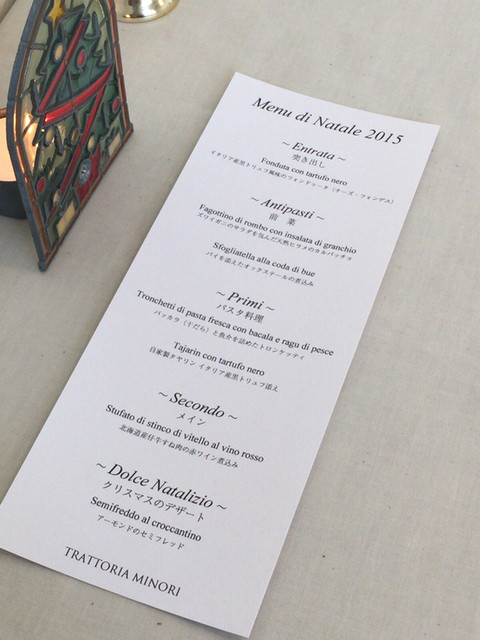 Menu di Natale 2015
~ Entrata ~
突き出し
Fonduta con tartufo nero
イタリア産黒トリュフ風味のフォンドゥータ（チーズ・フォンデュ）
~ Antipasti ~
前 菜
Fagottino di rombo con insalata di granchio
ズワイガニのサラダを包んだ天然ヒラメのカルパッチョ
Sfogliatella alla coda di bue
パイを添えたオックステールの煮込み
~ Primi ~
パスタ料理
Tronchetti di pasta fresca con bacala e ragu di pesce
バッカラ（干だら）と魚介を詰めたトロンケッティ
Tajarin con tartufo nero
自家製タヤリン イタリア産黒トリュフ添え
~ Secondo ~
メイン
Stufato di stinco di vitello al vino rosso
北海道産仔牛すね肉の赤ワイン煮込み
~ Dolce Natalizio ~
クリスマスのデザート
Semifreddo al croccantino
アーモンドのセミフレッド
TRATTORIA MINORI